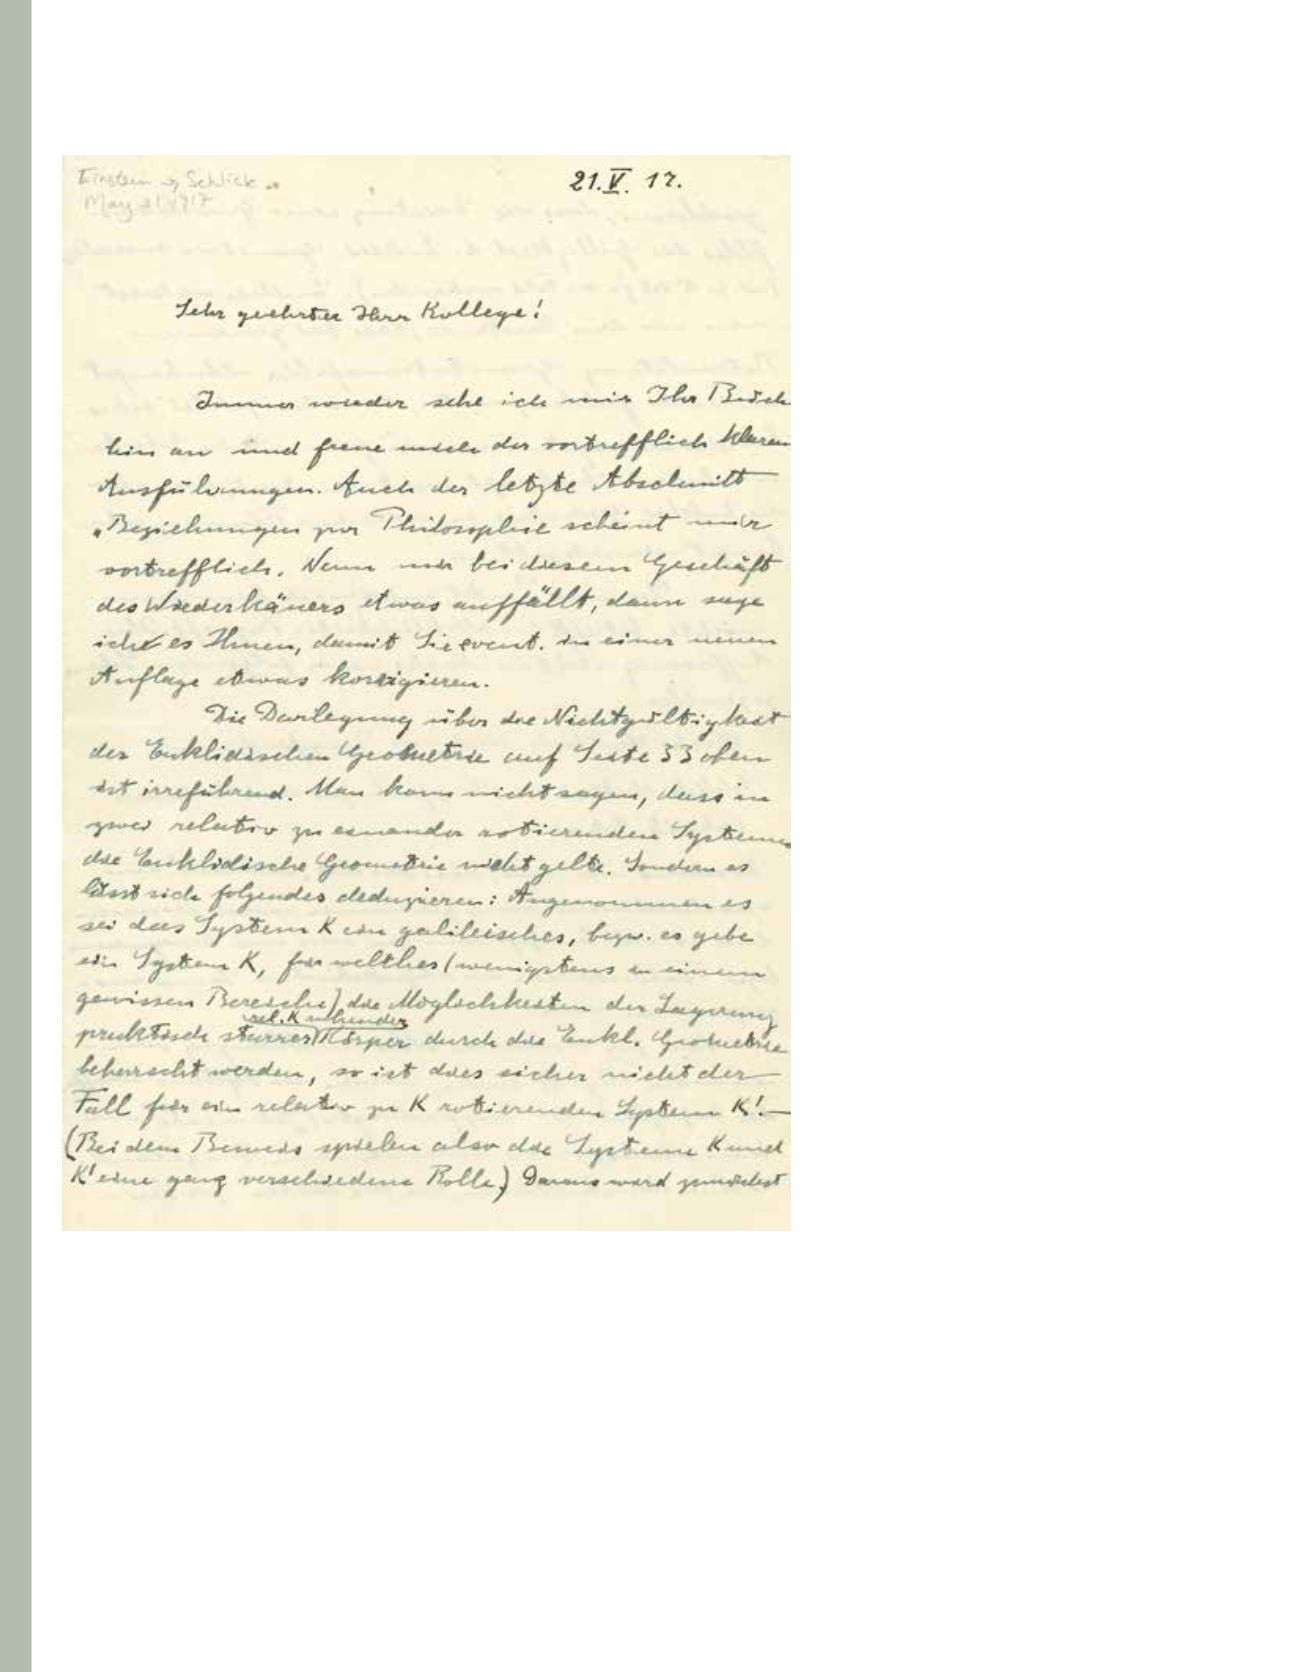 Einstein → Schlick
May 21 1917
21. V. 17.
Sehr geehrter Herr Kollege!
Immer wieder sehe ich mir Ihr Büch
lein an und freue mich der vortrefflich klaren
Ausführungen. Auch der letzte Abschnitt
„Beziehungen zur Philosophie scheint mir
vortrefflich. Wenn mir bei diesem Geschäft
des Wiederkäuers etwas auffällt, dann sage
ich es Ihnen, damit Sie event. in einer neuen
Auflage etwas korrigieren.
Die Darlegung über die Nichtgültigkeit
der Euklidischen Geometrie auf Seite 33 oben
ist irreführend. Man kann nicht sagen, dass in
zwei relativ zu einander rotierenden Systemen
die Euklidische Geometrie nicht gelte. Sondern es
lässt sich folgendes deduzieren: Angenommen es
sei das System K ein galileisches, bezw. es gebe
ein System K, für welches (wenigstens in einem
gewissen Bereiche) die Möglichkeiten der Lagerung
rel. K ruhender
praktisch starrer Körper durch die Eukl. Geometrie
beherrscht werden, so ist dies sicher nicht der
Fall für ein relativ zu K rotierenden System K'.—
(Bei dem Beweis spielen also die Systeme K und
K' eine ganz verschiedene Rolle.) Daraus wird zunächst